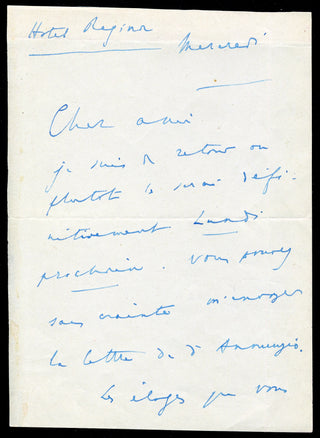 Hotel Regina
Mercredi
Cher ami
je suis de retour ou
plutot le serai défi-
nitivement Lundi
prochain. Vous pouvez
sans crainte m'envoyer
la lettre de d'Annunzio.
Les éloges que vous